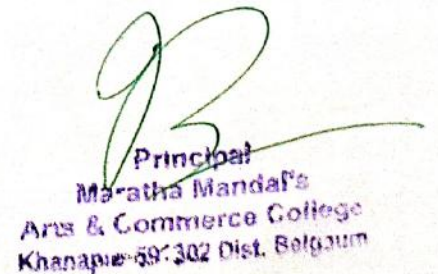 Principal
Maratha Mandal's
Arts & Commerce College
Khanapur-591302 Dist. Belgaum